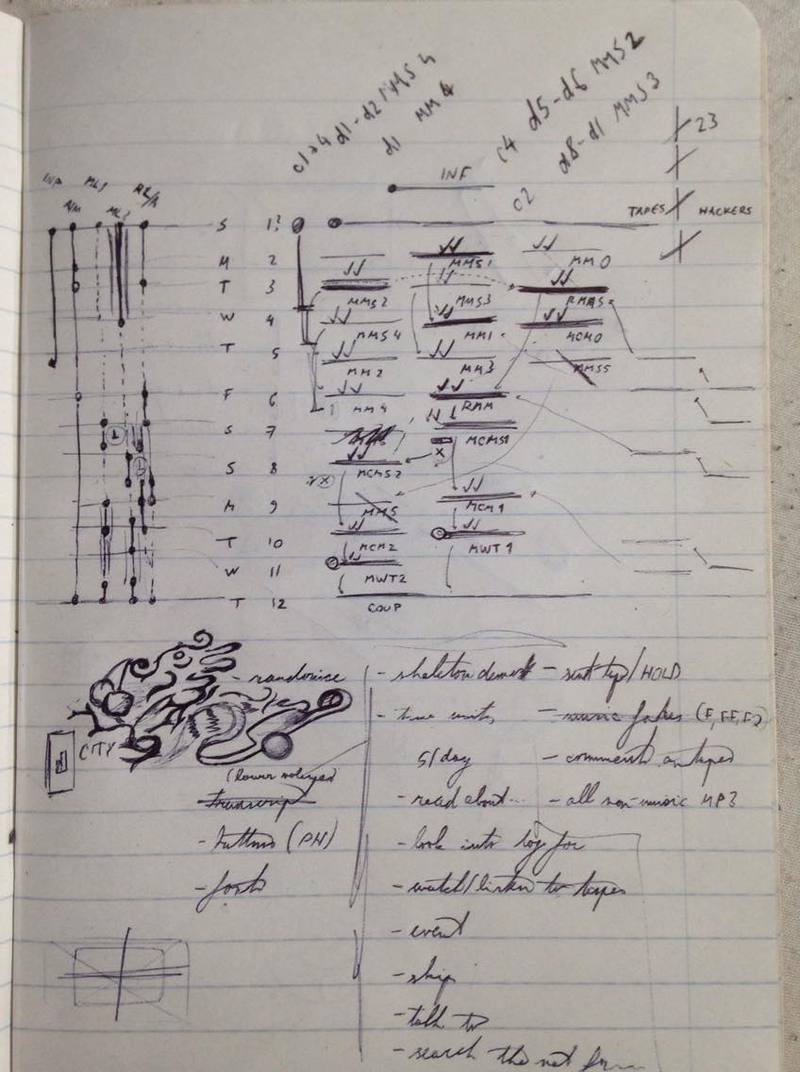 c1>4 d1-d2 MMS 4
d1 MM 4
c4 d5-d6 MMS2
c2 d8-d1 MMS3
23
INF
TAPES HACKERS
S 1
M 2 MMS1 MM0
T 3 MMS2 MMS3 RMMS
W 4 MMS4 MM1 MCM0
T 5 MM2 MM3 MMS5
F 6 MM4 RMM
S 7 MCMS1
S 8 MCMS2 X
M 9 MM5 MCM1
T 10 MCM2 MWT1
W 11 MWT2
T 12 COUP
- randomize - skeleton - /HOLD
- true units - music fakes (F, FF,
CITY 5/day - comments on tapes
(lower noleyed)
transcript - read about... - all non-music MP3
- buttons (PH) - look into log for
- fonts - watch/listen to tapes
- event
- skip
- talk to
- search the net for